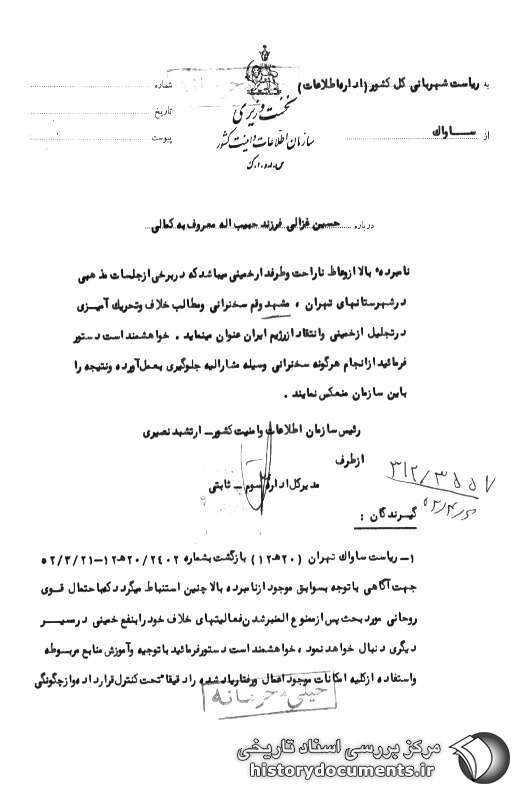 به ریاست شهربانی کل کشور (اداره اطلاعات)
شماره
نخست وزیری
تاریخ
از ســاواک
سازمان اطلاعات و امنیت کشور
پیوست
س.ا.و.ا.ک
درباره حسین غزالی فرزند حبیب اله معروف به کمالی
نامبرده بالا از وعاظ ناراحت و طرفدار خمینی میباشد که در برخی از جلسات مذهبی
در شهرستانهای تهران ، مشهد و قم سخنرانی و مطالب خلاف و تحریک آمیزی
در تجلیل از خمینی و انتقاد از رژیم ایران عنوان مینماید . خواهشمند است دستور
فرمائید از انجام هرگونه سخنرانی وسیله مشارالیه جلوگیری بعمل آورده و نتیجه را
باین سازمان منعکس نمایند .
رئیس سازمان اطلاعات و امنیت کشور ـ ارتشبد نصیری
از طرف
مدیرکل اداره سوم ـ ثابتی
۳۱۲/۳۵۵۷
گیرندگان :
۱ـ ریاست ساواک تهران (۲۰هـ۱۲) بازگشت بشماره ۲۰/۲۴۰۲هـ۱۲ـ۵۲/۳/۲۱
جهت آگاهی با توجه بسوابق موجود از نامبرده بالا چنین استنباط میگردد که باحتمال قوی
روحانی مورد بحث پس از ممنوع المنبر شدن فعالیتهای خلاف خود را بنفع خمینی در مسیر
دیگری دنبال خواهد نمود ، خواهشمند است دستور فرمائید با توجیه و آموزش منابع مربوطه
و استفاده از کلیه امکانات موجود اعمال و رفتار یاد شده را دقیقا" تحت کنترل قرار داده و از چگونگی
خیلی محرمانه
مرکز بررسی اسناد تاریخی
historydocuments.ir